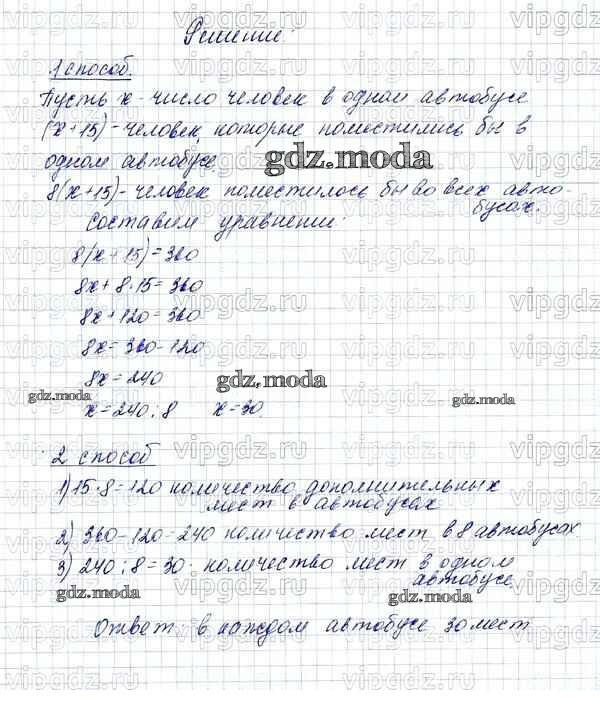 Решение:
1 способ
Пусть x - число человек в одном автобусе
(x+15) - человек, которые поместились бы в
одном автобусе.
gdz.moda
8(x+15) - человек поместилось бы во всех авто-
бусах.
составим уравнение:
8(x+15)=360
8x+8·15=360
8x+120=360
8x=360-120
8x=240
gdz.moda
gdz.moda
gdz.moda
x=240:8 x=30.
2 способ
1) 15·8=120 количество дополнительных
мест в автобусах
2) 360-120=240 количество мест в 8 автобусах
3) 240:8=30. количество мест в одном
автобусе
gdz.moda
gdz.moda
Ответ в каждом автобусе 30 мест
vipgdz.ru